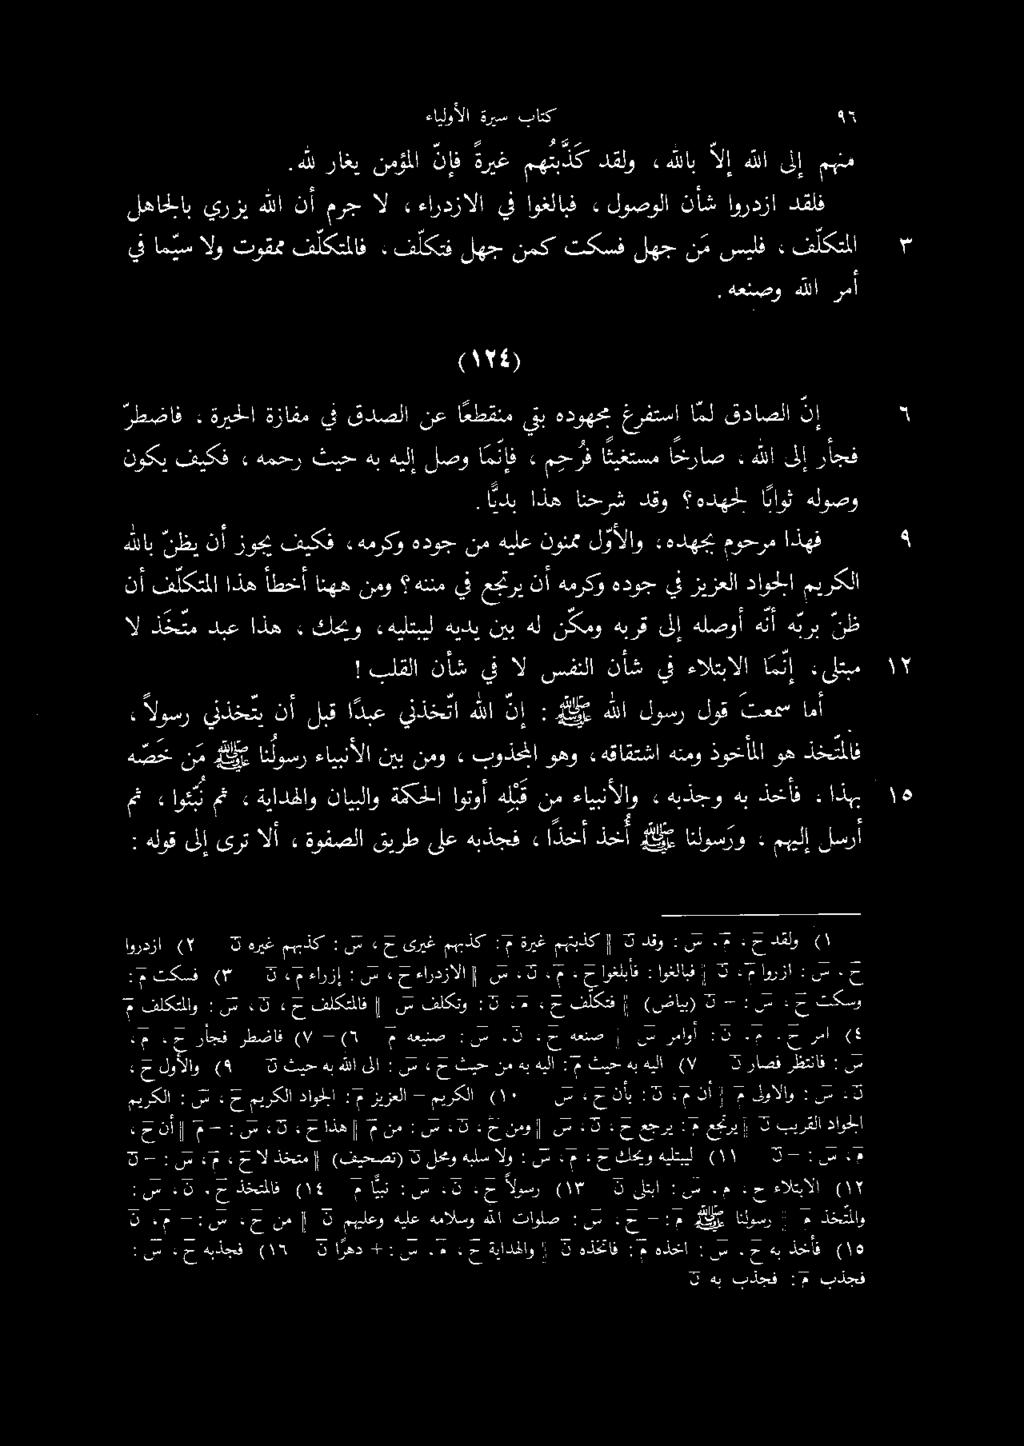 ٩٦ كتاب سيرة الأولياء
منهم إلى الله إلاّ بالله ، ولقد كذّبتُهم غيرةً فإنّ المؤمن يغار لله .
فلقد ازدروا شأن الوصول ، فبالغوا في الازدراء ، لا جرم أن الله يزري بالجاهل
٣ المتكلّف ، فليس مَن جهل فسكت كمن جهل فتكلّف ، فالمتكلّف ممقوت ولا سيّما في
أمر الله وصنعه .
(١٢٤)
٦ إنّ الصادق لمّا استفرغ مجهوده بقي منقطعاً عن الصدق في مفازة الحيرة ، فاضطرّ
فجأر إلى الله ، صارخاً مستغيثاً فرُحِم ، فإنّمَا وصل إليه به حيث رحمه ، فكيف يكون
وصوله ثواباً لجهده ؟ وقد شرحنا هذا بديّاً .
٩ فهذا مرحوم بجهده ، والأوّل ممنون عليه من جوده وكرمه ، فكيف يجوز أن يظنّ بالله
الكريم الجواد العزيز في جوده وكرمه أن يرتجع في مننه ؟ ومن ههنا أخطأ هذا المتكلّف أن
ظنّ بربّه أنّه أوصله إلى قربه ومكّن له بين يديه ليبتليه ، ويحك ، هذا عبد متّخَذ لا
١٢ مبتلى ، إنّمَا الابتلاء في شأن النفس لا في شأن القلب !
أما سمعتَ قول رسول الله ﷺ : إنّ الله اتّخذني عبداً قبل أن يتّخذني رسولاً ،
فالمتّخذ هو المأخوذ ومنه اشتقاقه ، وهو المجذوب ، ومن بين الأنبياء رسولُنا ﷺ مَن خَصّه
١٥ بهذا ، فأخذ به وجذبه ، والأنبياء من قَبْلِه أوتوا الحكمة والبيان والهداية ، ثم نُبِّئوا ، ثم
أرسل إليهم ، ورَسولنا ﷺ أُخذ أخذاً ، فجذبه على طريق الصفوة ، ألا ترى إلى قوله :
١) ولقد ح ، م ، س : وقد ن || كذبتهم غيرة م : كذبهم غيرى ح ، س : كذبهم غيره ن ٢) ازدروا
ح ، س : ازروا م ، ن || فبالغوا : فأبلغوا ح ، م ، ن ، س || الازدراء ح ، س : إزراء م ، ن ٣) فسكت م :
وسكت ح ، س : – ن (بياض) || فتكلّف ح ، م ، ن : وتكلف س || فالمتكلف ح ، ن ، س : والمتكلف م
٤) امر ح ، م ، ن : أوامر س || صنعه ح ، ن ، س : صنيعه م ٦) – ٧) فاضطر فجأر ح ، م ،
س : فانتظر فصار ن ٧) اليه به حيث م : اليه به من حيث ح ، س : الى الله به حيث ن ٩) والأول ح ،
ن ، س : والاولى م || أن م ، ن : بأن ح ، س ١٠) الكريم – العزيز م : الجواد الكريم ح ، س : الكريم
الجواد القريب ن || يرتجع م : يرجع ح ، ن ، س || ومن ح ، ن ، س : من م || هذا ح ، ن ، س : – م || أن ح ،
م ، س : – ن ١١) ليبتليه ويحك ح ، م ، س : ولا سلبه ومحل ن (تصحيف) || متخذ لا ح ، م ، س : – ن
١٢) الابتلاء ح ، م ، س : ابتلى ن ١٣) رسولاً ح ، ن ، س : نبيّاً م ١٤) فالمتخذ ح ، ن ، س :
والمتّخذ م || رسولنا ﷺ م : – ح ، س : صلوات الله وسلامه عليه وعليهم ن || من ح ، س : – م ، ن
١٥) فأخذ به ح ، س : اخذه م : فاتخذه ن || والهداية ح ، م ، س : + دهراً ن ١٦) فجذبه ح ، س :
فجذب م : فجذب به ن